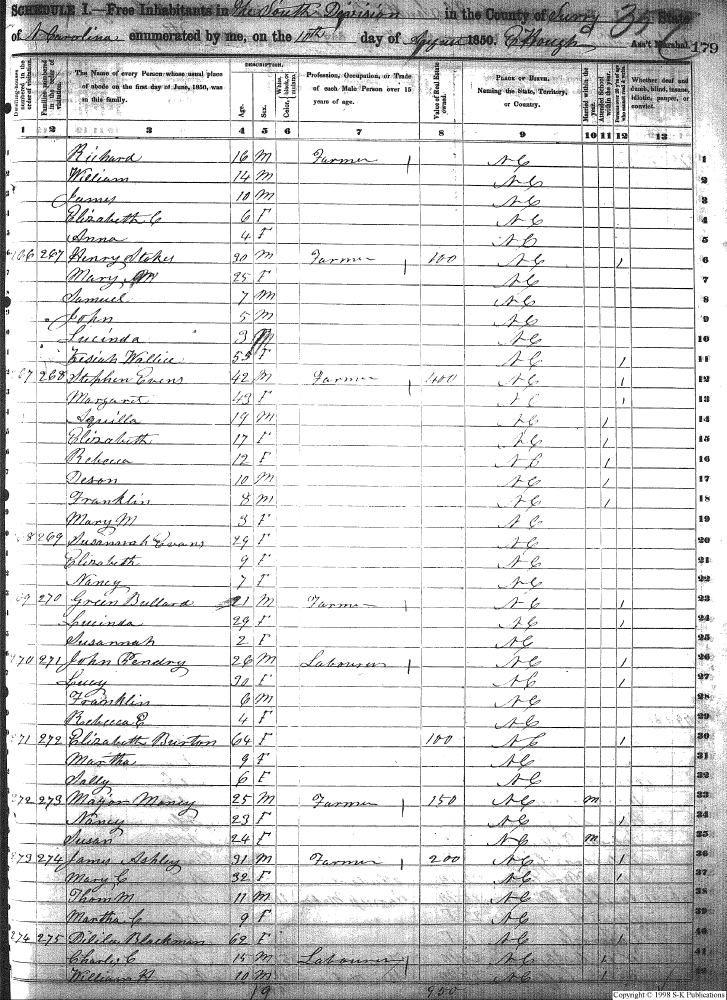 SCHEDULE I.—Free Inhabitants in The South Division in the County of Surry State
of N Carolina enumerated by me, on the 10th day of August 1850. C Hough Ass't Marshal. 179
DESCRIPTION.
The Name of every Person whose usual place of abode on the first day of June, 1850, was in this family.
Age.
Sex.
Profession, Occupation, or Trade of each Male Person over 15 years of age.
Value of Real Estate owned.
PLACE OF BIRTH. Naming the State, Territory, or Country.
Married within the year.
Attended School within the year.
Whether deaf and dumb, blind, insane, idiotic, pauper, or convict.
1 2 3 4 5 6 7 8 9 10 11 12 13
1 Richard 16 M Farmer NC 1
2 William 14 M NC 2
3 James 10 M NC 3
4 Elizabeth C 6 F NC 4
5 Anna 4 F NC 5
267 Henry Stokes 30 M Farmer 100 NC 6
Mary M 25 F NC 7
Samuel 7 M NC 8
John 5 M NC 9
Lucinda 3 NC 10
55 F NC 11
268 Stephen Evens 42 M Farmer 400 NC 12
Margaret 43 F NC 13
Aquilla 19 M NC 14
Elizabeth 17 F NC 15
Rebecca 12 F NC 16
10 M NC 17
Franklin 8 M NC 18
Mary M 3 F NC 19
269 Susannah Evans 29 F NC 20
Elizabeth 9 F NC 21
Nancy 7 F NC 22
270 Green Bullard 21 M Farmer NC 23
Lucinda 29 F NC 24
Susannah 2 F NC 25
271 John Pendry 26 M Labourer NC 26
Lucy 30 F NC 27
Franklin 6 M NC 28
Rebecca E 4 F NC 29
272 Elizabeth Burton 64 F 100 NC 30
Martha 9 F NC 31
Sally 6 F NC 32
272 273 Major Maney 25 M Farmer 150 NC m 33
Nancy 23 F NC 34
Susan 24 F NC m 35
273 274 James Ashley 31 M Farmer 200 NC 36
Mary C 32 F NC 37
Thom M 11 M NC 38
Martha C 9 F NC 39
274 275 Dilila Blackman 62 F NC 40
Charlie C 15 M Labourer NC 41
William H 10 M NC 42
19 950
Copyright © 1998 S-K Publications